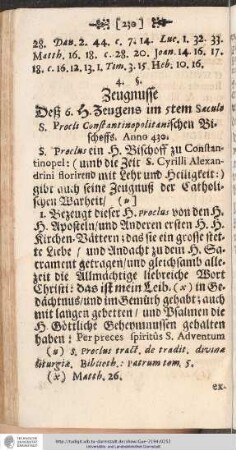 [230]
28. Dan. 2. 44. c. 7. 14. Luc. 1. 32. 33.
Matth. 16. 18. c. 28. 20. Joan. 14. 16. 17.
18. c. 16. 12. 13. 1. Tim. 3. 15. Heb. 10. 16.
4. §.
Zeugnusse
Deß 6. H. Zeugens im 5tem Saeculo
S. Procli Constantinopolitanischen Bi-
schoffs. Anno 430.
S. Proclus ein H. Bischoff zu Constan-
tinopel: (umb die Zeit S. Cyrilli Alexan-
drini florirend mit Lehr und Heiligkeit:)
gibt auch seine Zeugnuß der Catholi-
schen Warheit/ (u)
1. Bezeugt dieser H. Proclus von den H.
H. Aposteln/ und Anderen ersten H. H.
Kirchen-Vättern: das sie ein grosse stet-
te Liebe / und Andacht zu dem H. Sa-
crament getragen/ und gleichsamb alle-
zeit die Allmächtige liebreiche Wort
Christi: das ist mein Leib. (x) in Ge-
dächtnus/ und im Gemüth gehabt; auch
mit langen gebetten / und Psalmen die
H Göttliche Geheymnussen gehalten
haben: Per preces spiritûs S. Adventum
(u) S. Proclus tract. de tradit. divinæ
liturgiæ. Biblioth. Patrum tom. 5.
(x) Matth. 26.
ex-